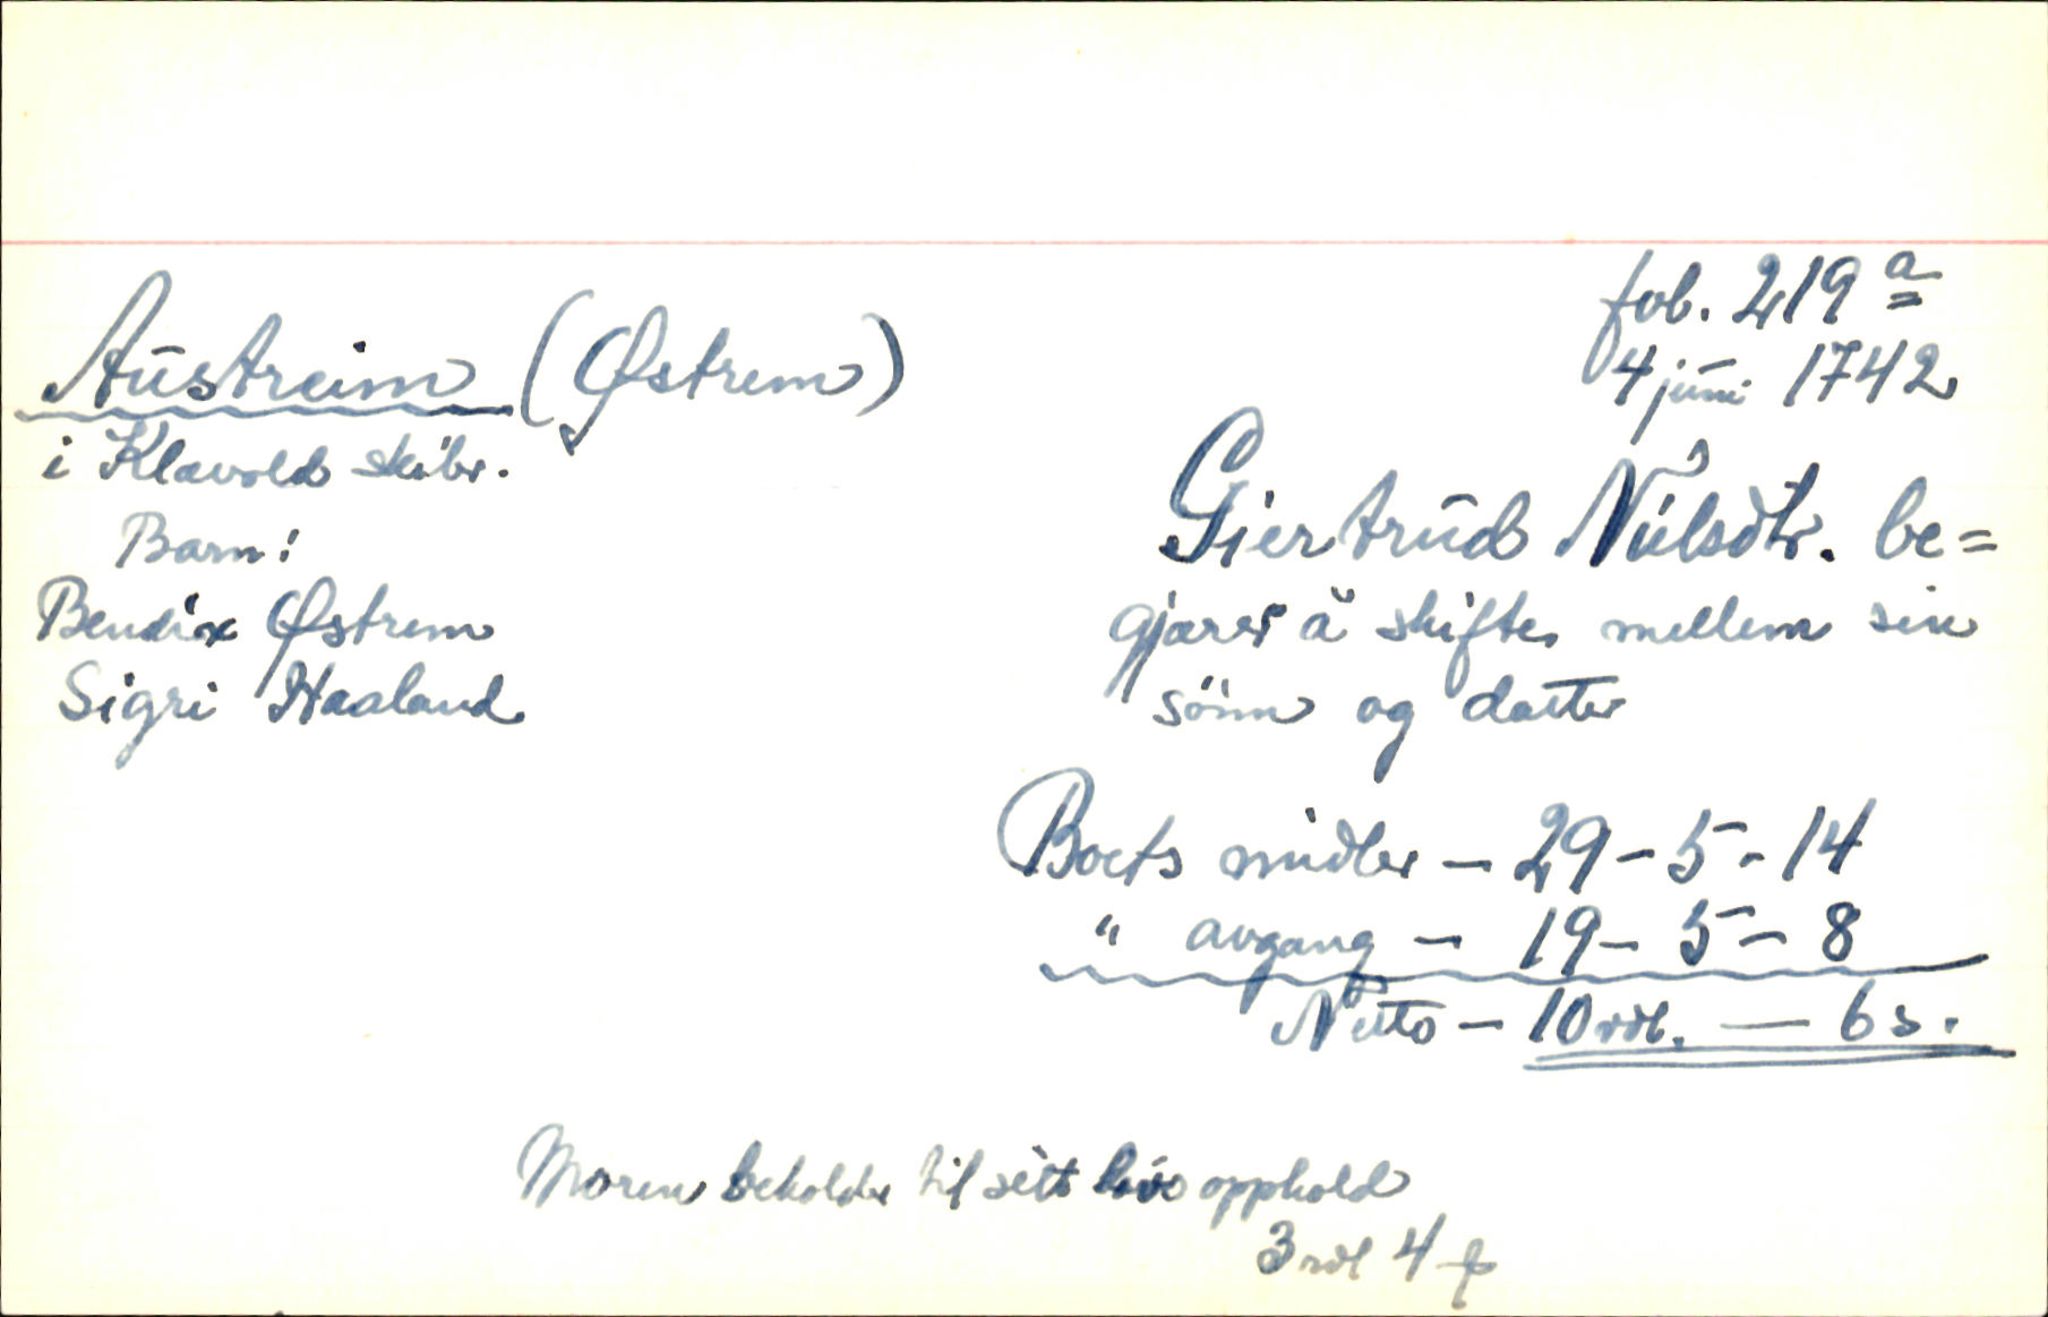 fol. 219 a
4 juni 1742
Austreim (Østrem)
i Klavold skibr.
Barn:
Bendix Østrem
Sigri Haaland
Giertrud Nilsdtr. be=
gjærer å skifte mellem sin
sönn og datter
Boets midler - 29 - 5 - 14
" avgang - 19 - 5 - 8
Netto - 10 rdl. — 6 s.
Moren beholder til sitt livs opphold
3 rdl 4